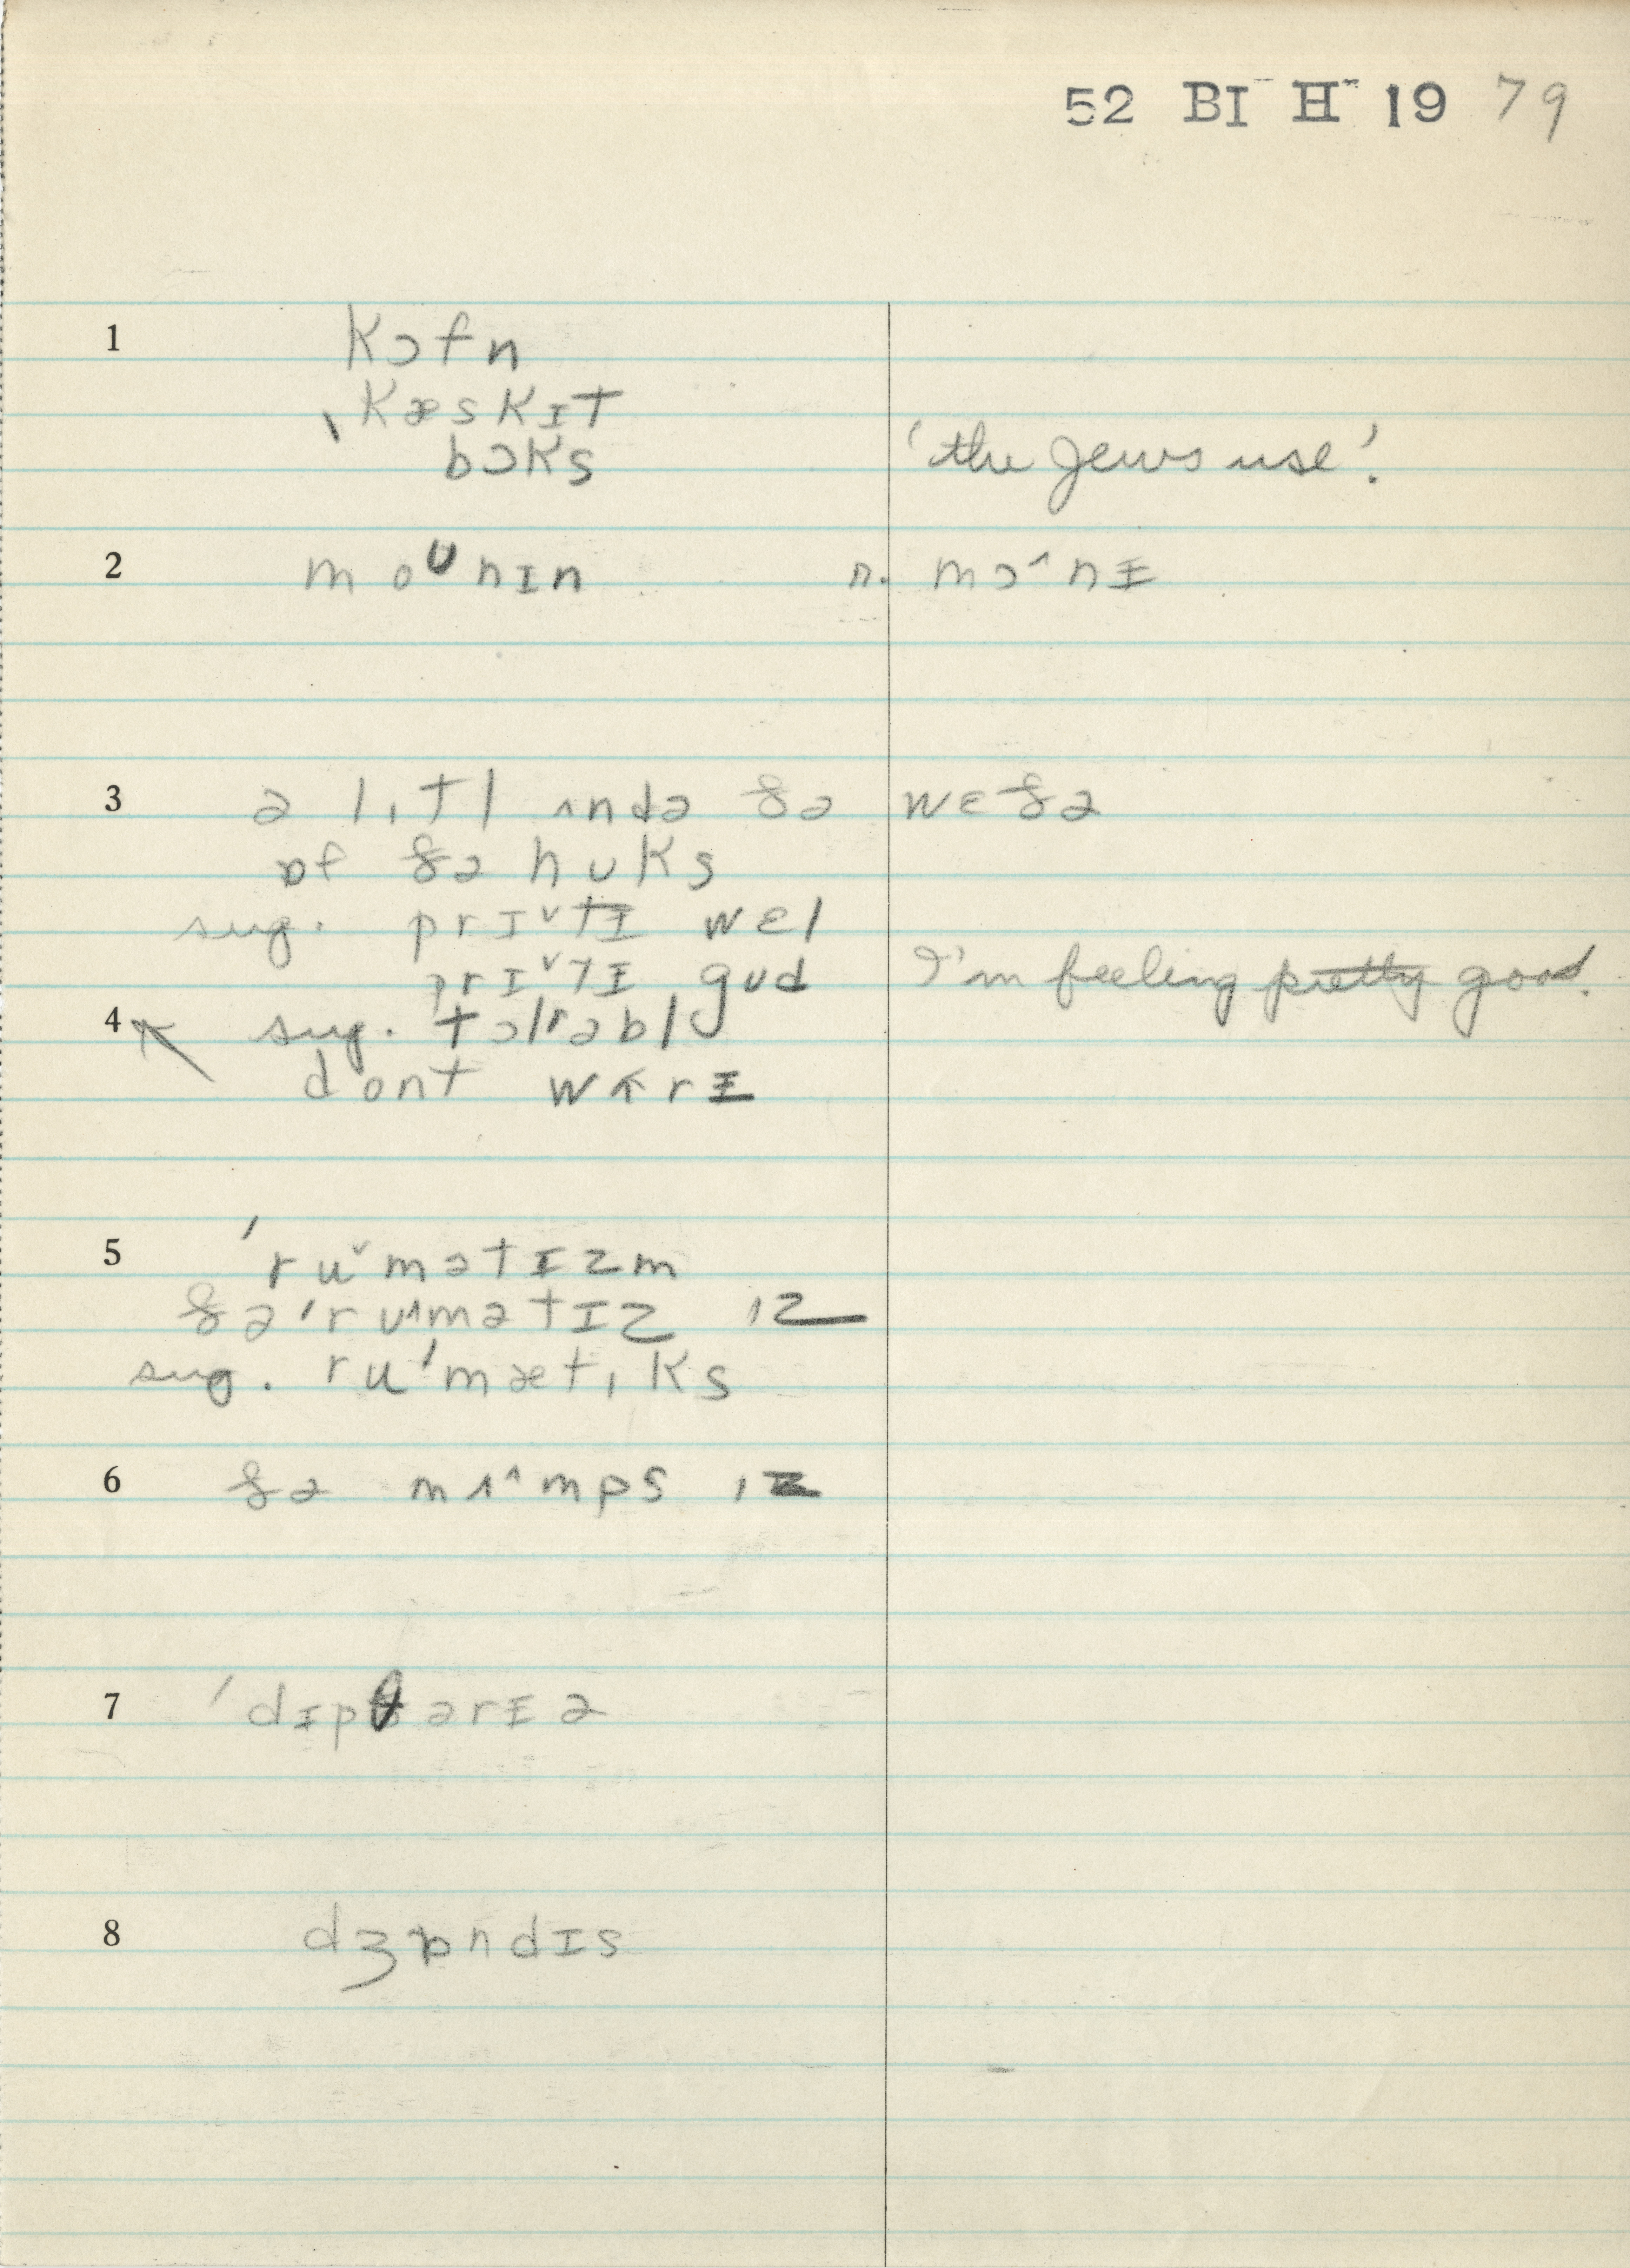 52 BI H 19 79
1 kɔfn
ˌkæskɪt
bɔks 'the Jews use'.
2 moᶷnɪn n. mɔ^nɨ
3 ə lɪtl ʌndə ðə wɛðə
ɒf ðə hʊks
sug. prɪˇtɨ wɛl
prɪˇtɨ gʊd I'm feeling pretty good.
4 sug. tɔlrəbl
dont wʌrɨ
5 ˈruˇmətɪzm
ðəˈru^mətɪz ɪz
sug. ruˈmætɪks
6 ðə mʌ^mps ɪz
7 ˈdɪpθərɨə
8 dʒɒndɪs